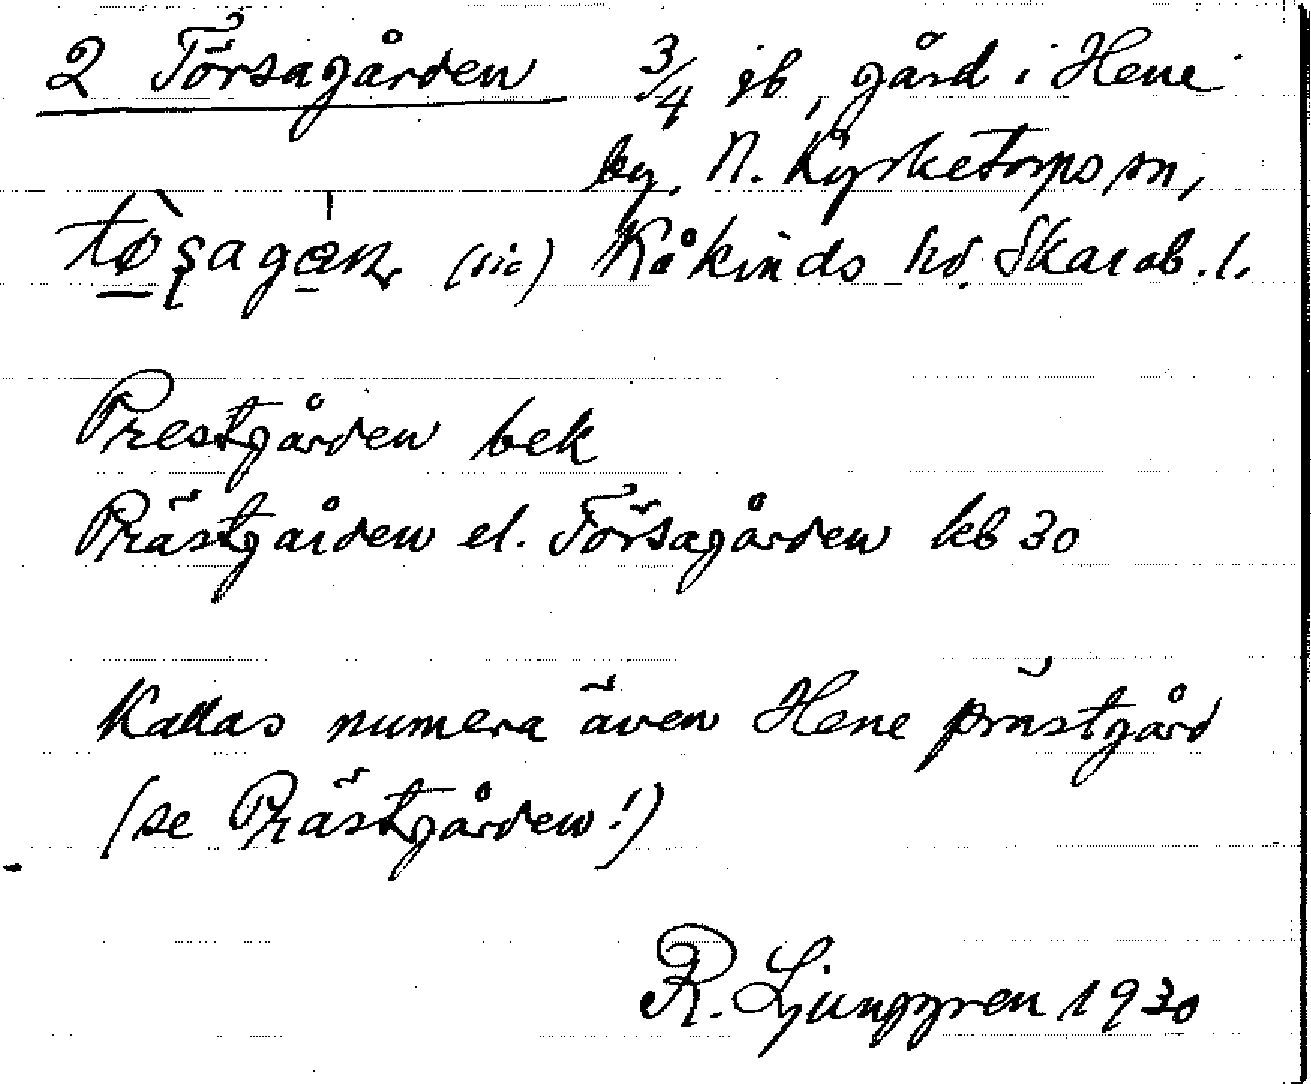 2 Törsagården 3/4 jb, gård i Hene
by, N. Kyrketorps sn,
(sic) Kåkinds hd. Skarab. l.
Prestgården bek
Prästgården el. Törsagården kb 30
Kallas numera även Hene prästgård
(se Prästgården!)
R. Ljunggren 1930